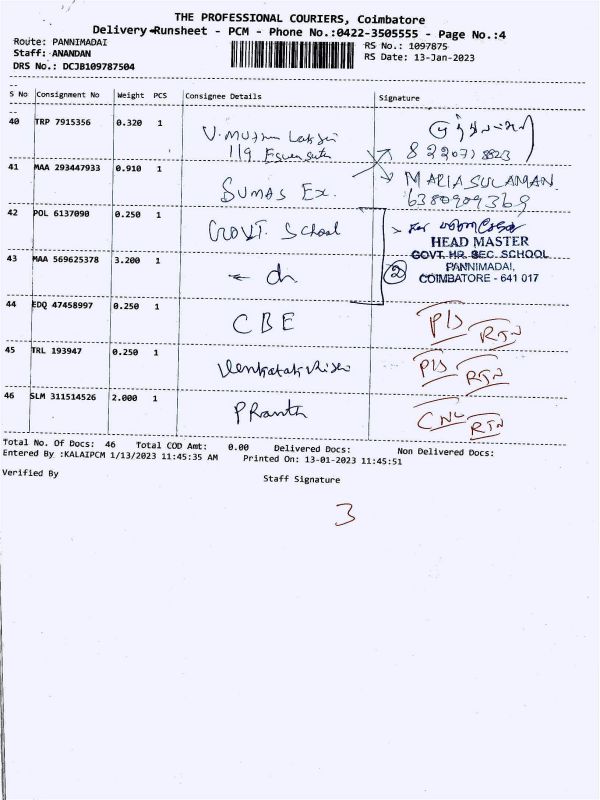 THE PROFESSIONAL COURIERS, Coimbatore
Delivery Runsheet - PCM - Phone No.:0422-3505555 - Page No.:4
Route: PANNIMADAI
Staff: ANANDAN
DRS No.: DCJB109787504
RS No.: 1097875
RS Date: 13-Jan-2023
S No Consignment No Weight PCS Consignee Details Signature
40 TRP 7915356 0.320 1
119
41 MAA 293447933 0.910 1 SUMAS Ex.
MARIASULAMAN
6380909369
42 POL 6137090 0.250 1 GOVT. School
HEAD MASTER
GOVT. HR. SEC. SCHOOL
PANNIMADAI,
COIMBATORE - 641 017
43 MAA 569625378 3.200 1
2
44 EDQ 47458997 0.250 1 CBE P/S RTN
45 TRL 193947 0.250 1 P/S RTN
46 SLM 311514526 2.000 1 PRanth CNL RTN
Total No. Of Docs: 46 Total COD Amt: 0.00 Delivered Docs: Non Delivered Docs:
Entered By :KALAIPCM 1/13/2023 11:45:35 AM Printed On: 13-01-2023 11:45:51
Verified By Staff Signature
3